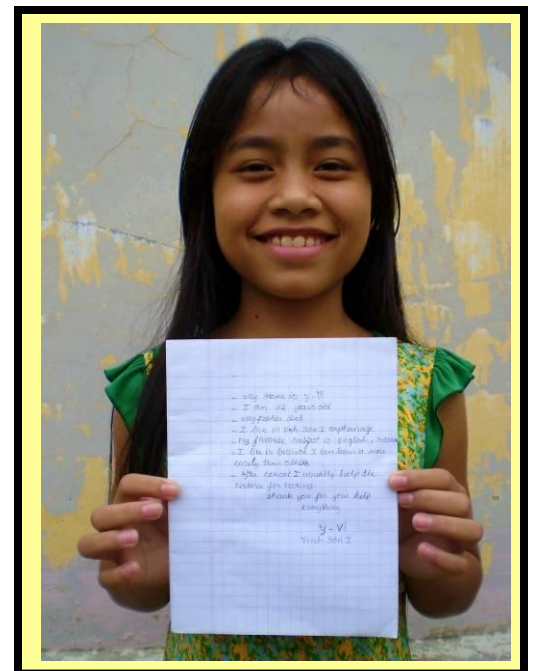 - My name is Y-Vĩ
- I am 12 years old
- My father died
- I live in Vinh Sơn I orphanage
- My favorite subject is: English,
- I like is because I can learn a more
easily than others
- After school I usually help the
sisters for cooking
thank you for your help
everything
Y-Vĩ
Vinh Sơn I